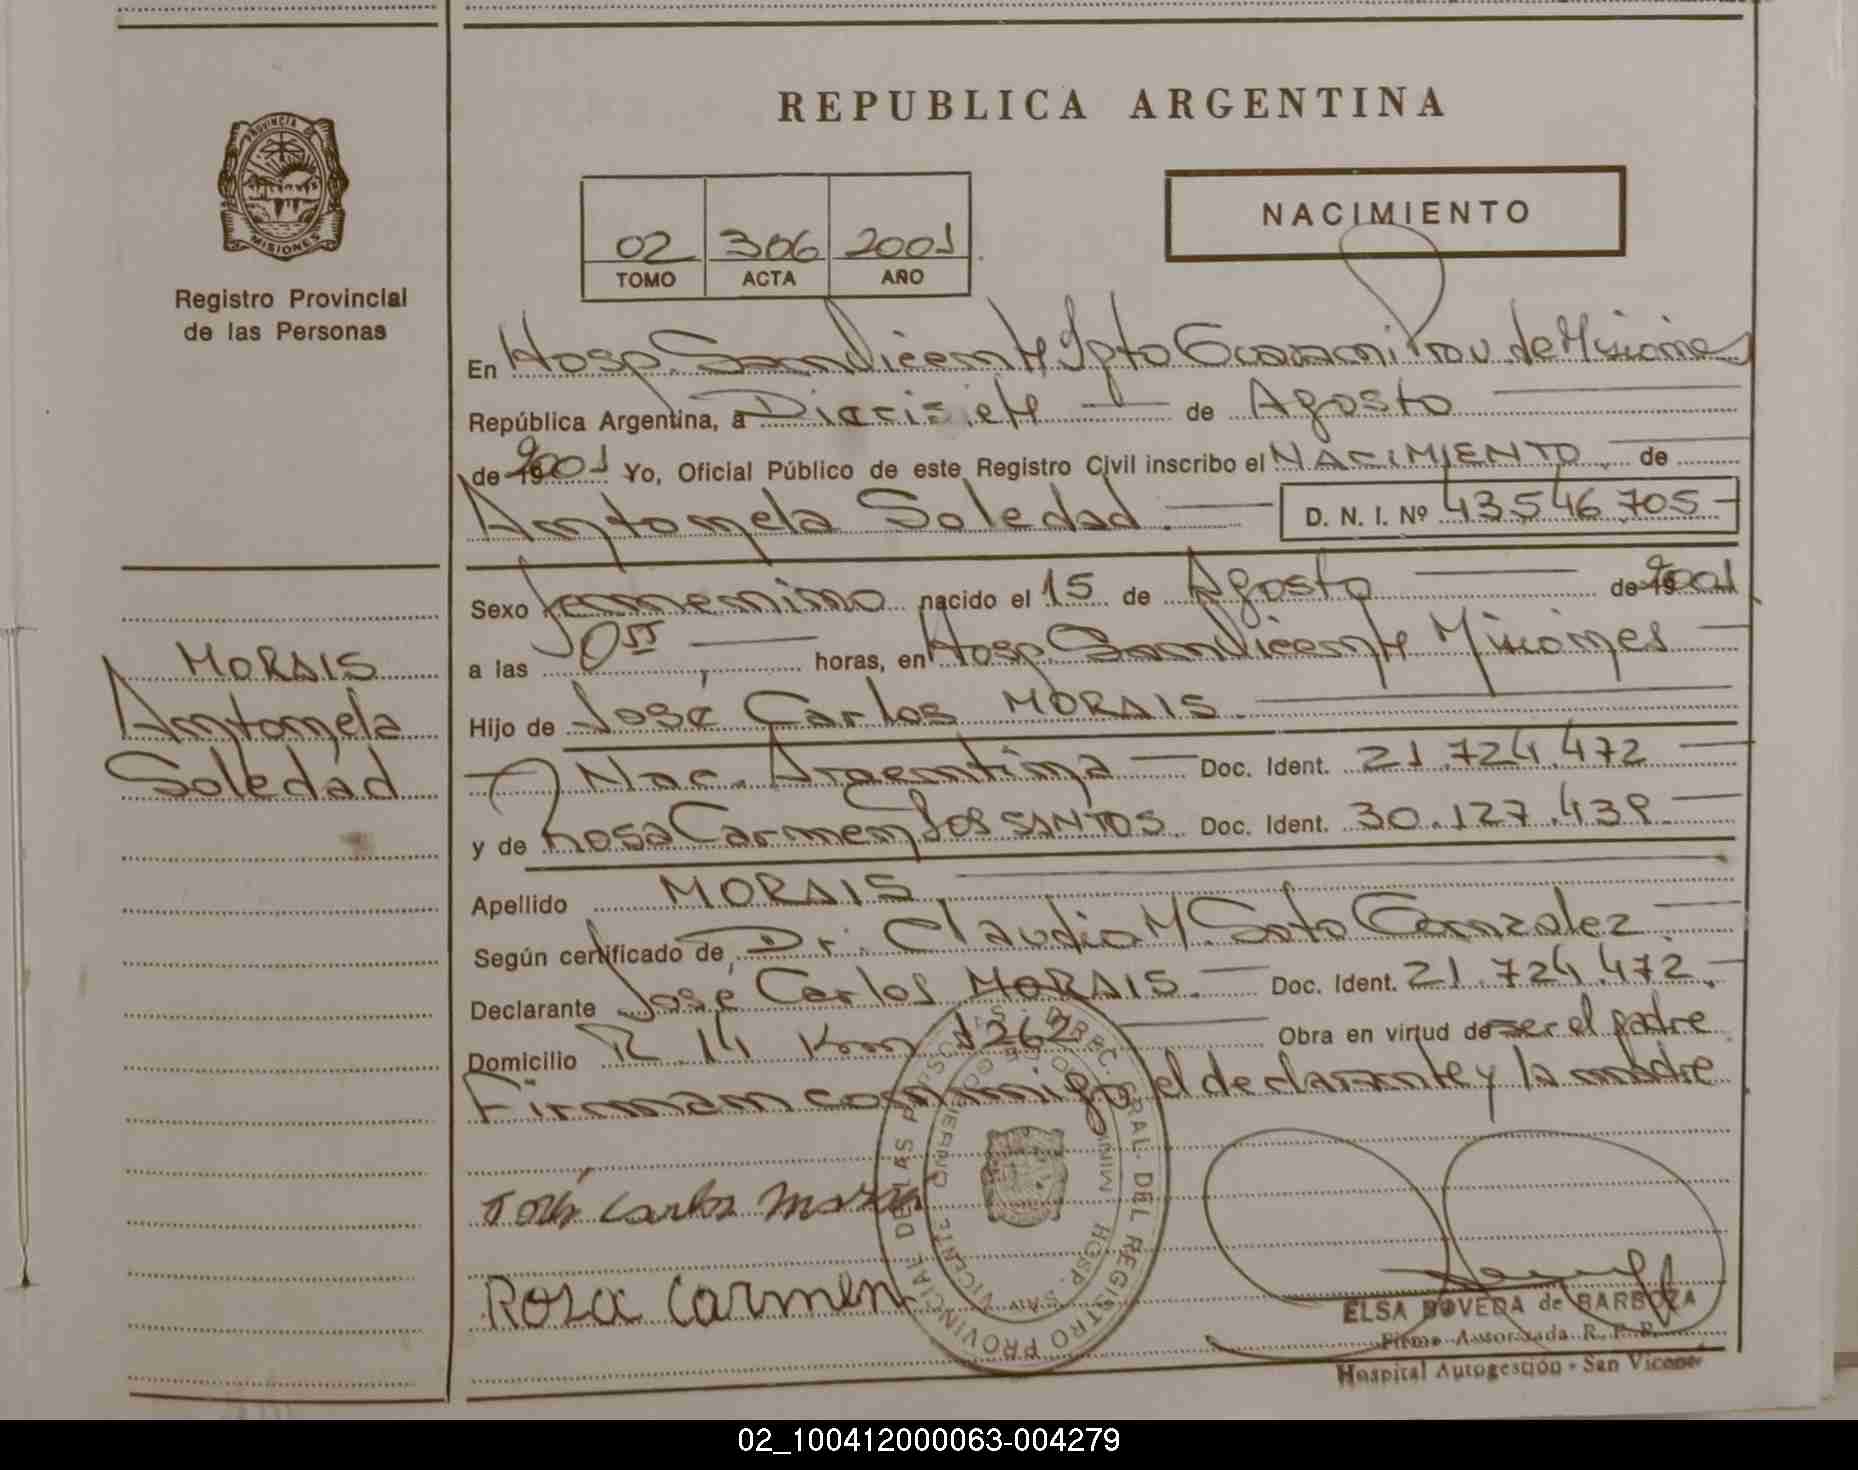 REPUBLICA ARGENTINA
PROVINCIA DE
MISIONES
Registro Provincial
de las Personas
02 306 2001
TOMO ACTA AÑO
NACIMIENTO
En Hosp. San Vicente Dpto Guarani Prov. de Misiones
República Argentina, a Diecisiete de Agosto
de 2001 Yo, Oficial Público de este Registro Civil inscribo el NACIMIENTO de
Antonela Soledad. D. N. I. Nº 43.546.705
Sexo femenino nacido el 15 de Agosto de 2001
a las horas, en Hosp. San Vicente Misiones
MORAIS
Antonela
Soledad
Hijo de José Carlos MORAIS.
Nac. Argentina Doc. Ident. 21.724.472
y de Rosa Carmen Dos SANTOS. Doc. Ident. 30.127.439
Apellido MORAIS
Según certificado de Dr. Claudio M. Soto Gonzalez
Declarante José Carlos MORAIS. Doc. Ident. 21.724.472.
Domicilio R 14 Km 1262 Obra en virtud de ser el padre
Firman conmigo el declarante y la madre
José Carlos
Rosa Carmen
DIREC. GRAL. DEL REGISTRO PROVINCIAL DE LAS PERSONAS
HOSP. SAN VICENTE
ELSA BOVEDA de BARBOZA
Firma Autorizada R. P. P.
Hospital Autogestión - San Vicente
02_100412000063-004279